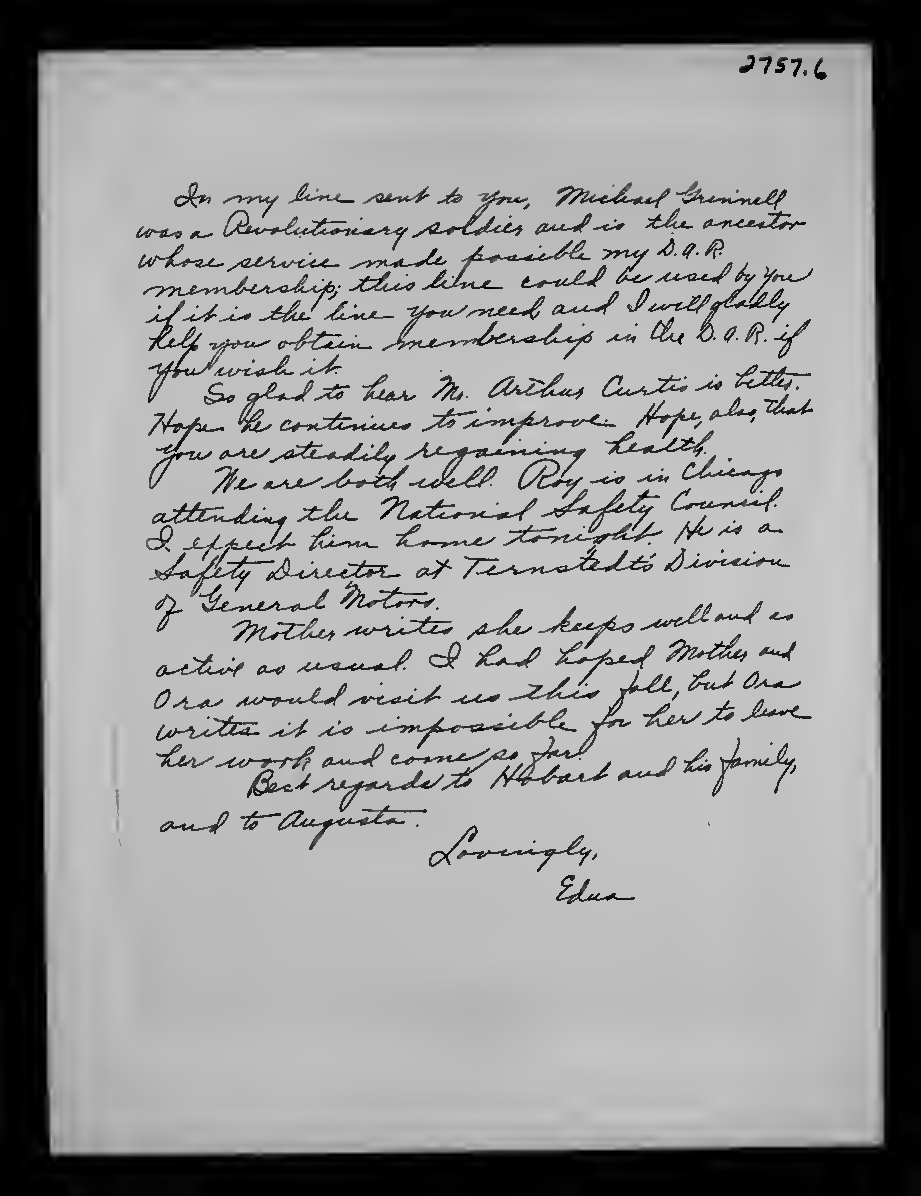 2757.6
In my line sent to you, Michael Grinnell
was a Revolutionary soldier and is the ancestor
whose service made possible my D.A.R.
membership; this line could be used by you
if it is the line you need, and I will gladly
help you obtain membership in the D.A.R. if
you wish it.
So glad to hear Mr. Arthur Curtis is better.
Hope he continues to improve. Hope, also, that
you are steadily regaining health.
We are both well. Roy is in Chicago
attending the National Safety Council.
I expect him home tonight. He is a
Safety Director at Ternstedt's Division
of General Motors.
Mother writes she keeps well and as
active as usual. I had hoped Mother and
Ora would visit us this fall, but Ora
writes it is impossible for her to leave
her work and come so far.
Best regards to Hobart and his family,
and to Augusta.
Lovingly,
Edna